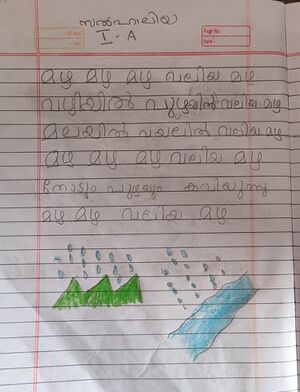 സൽഹാലിയ
I - A
മഴ മഴ മഴ വലിയ മഴ
വഴിയിൽ പുഴയിൽ വലിയ മഴ
മലയിൽ വയലിൽ വലിയ മഴ
മഴ മഴ മഴ വലിയ മഴ
തോടും പുഴയും കവിയുന്നു
മഴ മഴ വലിയ മഴ
Page No :
Date :